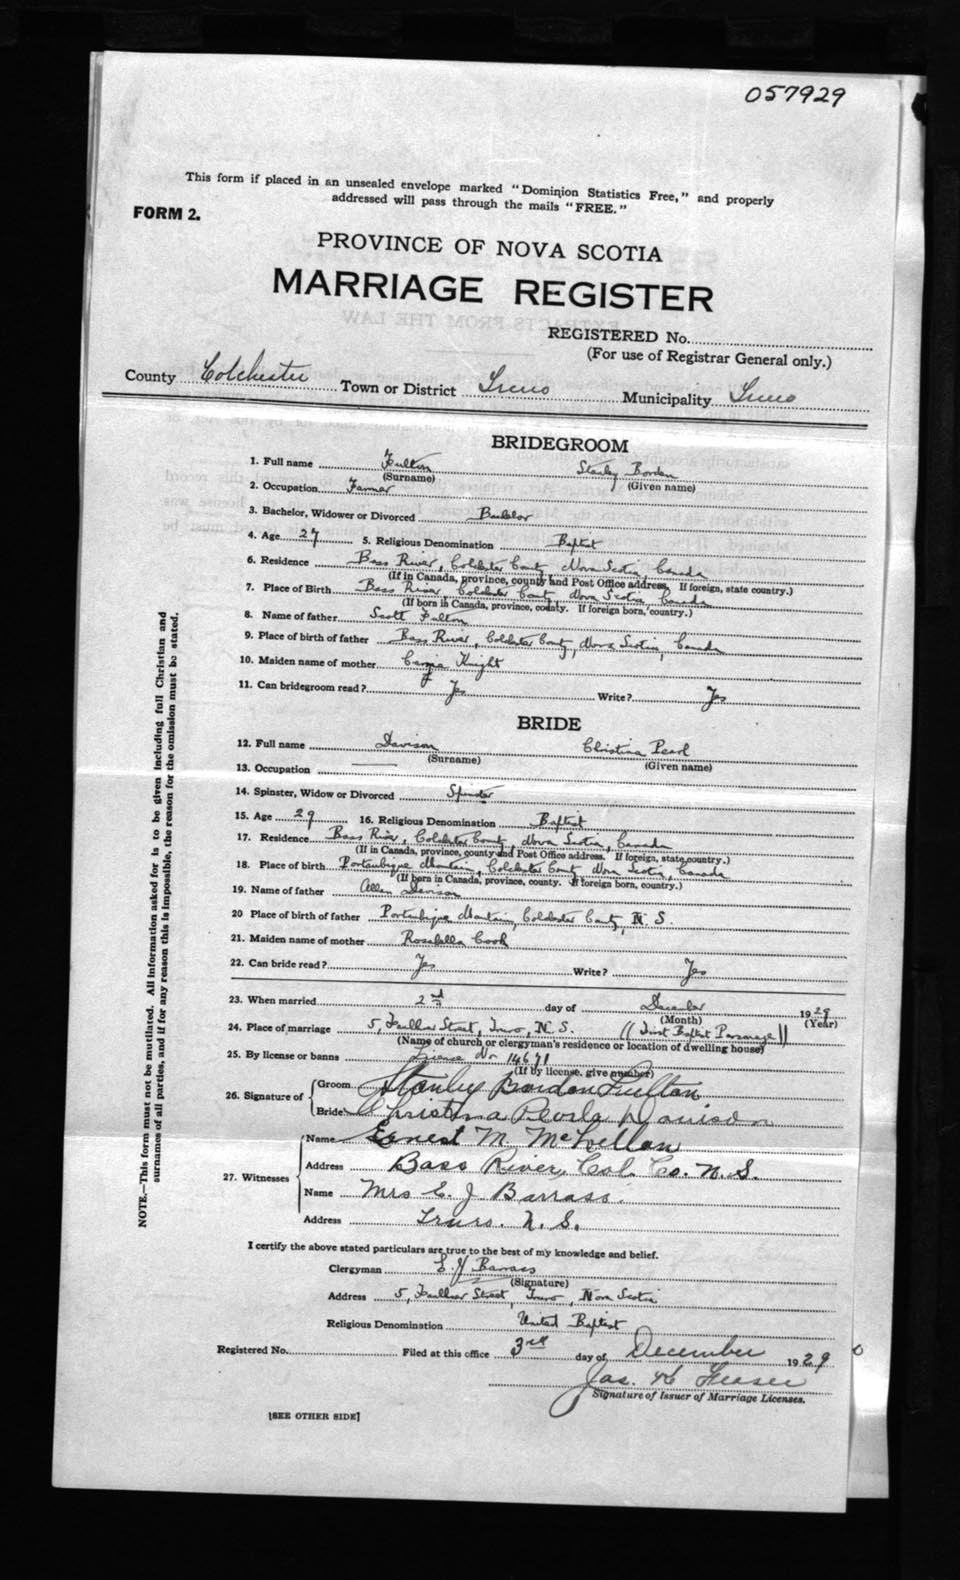 057929
This form if placed in an unsealed envelope marked "Dominion Statistics Free," and properly
addressed will pass through the mails "FREE."
FORM 2.
PROVINCE OF NOVA SCOTIA
MARRIAGE REGISTER
REGISTERED No.
(For use of Registrar General only.)
County Colchester Town or District Truro Municipality Truro
BRIDEGROOM
1. Full name Fulton Stanley Borden
(Surname) (Given name)
2. Occupation Farmer
3. Bachelor, Widower or Divorced Bachelor
4. Age 27 5. Religious Denomination Baptist
6. Residence Bass River, Colchester County, Nova Scotia, Canada
(If in Canada, province, county and Post Office address. If foreign, state country.)
7. Place of Birth Bass River, Colchester County, Nova Scotia, Canada
(If born in Canada, province, county. If foreign born, country.)
8. Name of father Scott Fulton
9. Place of birth of father Bass River, Colchester County, Nova Scotia, Canada
10. Maiden name of mother Knight
11. Can bridegroom read? Yes Write? Yes
BRIDE
12. Full name Davison Christina Pearl
(Surname) (Given name)
13. Occupation
14. Spinster, Widow or Divorced Spinster
15. Age 29 16. Religious Denomination Baptist
17. Residence Bass River, Colchester County, Nova Scotia, Canada
(If in Canada, province, county and Post Office address. If foreign, state country.)
18. Place of birth Portaubique Mountain, Colchester County, Nova Scotia, Canada
(If born in Canada, province, county. If foreign born, country.)
19. Name of father Allen Davison
20 Place of birth of father Portaubique Mountain, Colchester County, N.S.
21. Maiden name of mother Rosabella Cook
22. Can bride read? Yes Write? Yes
23. When married 2nd day of December 1929
(Month) (Year)
24. Place of marriage 5, Faulkner Street, Truro, N.S. (First Baptist Parsonage)
(Name of church or clergyman's residence or location of dwelling house)
25. By license or banns License No 14671
(If by license, give number)
26. Signature of
Groom Stanley Borden Fulton
Bride Christina Pearla Davison
27. Witnesses
Name Ernest M. McLellan
Address Bass River, Col. Co. N.S.
Name Mrs E. J Barrass.
Address Truro. N.S.
I certify the above stated particulars are true to the best of my knowledge and belief.
Clergyman E. J Barrass
(Signature)
Address 5, Faulkner Street, Truro, Nova Scotia
Religious Denomination United Baptist
Registered No. Filed at this office 3rd day of December 1929
Jas. K Fraser
Signature of Issuer of Marriage Licenses.
[SEE OTHER SIDE]
NOTE.—This form must not be mutilated. All information asked for is to be given including full Christian and
surnames of all parties, and if for any reason this is impossible, the reason for the omission must be stated.